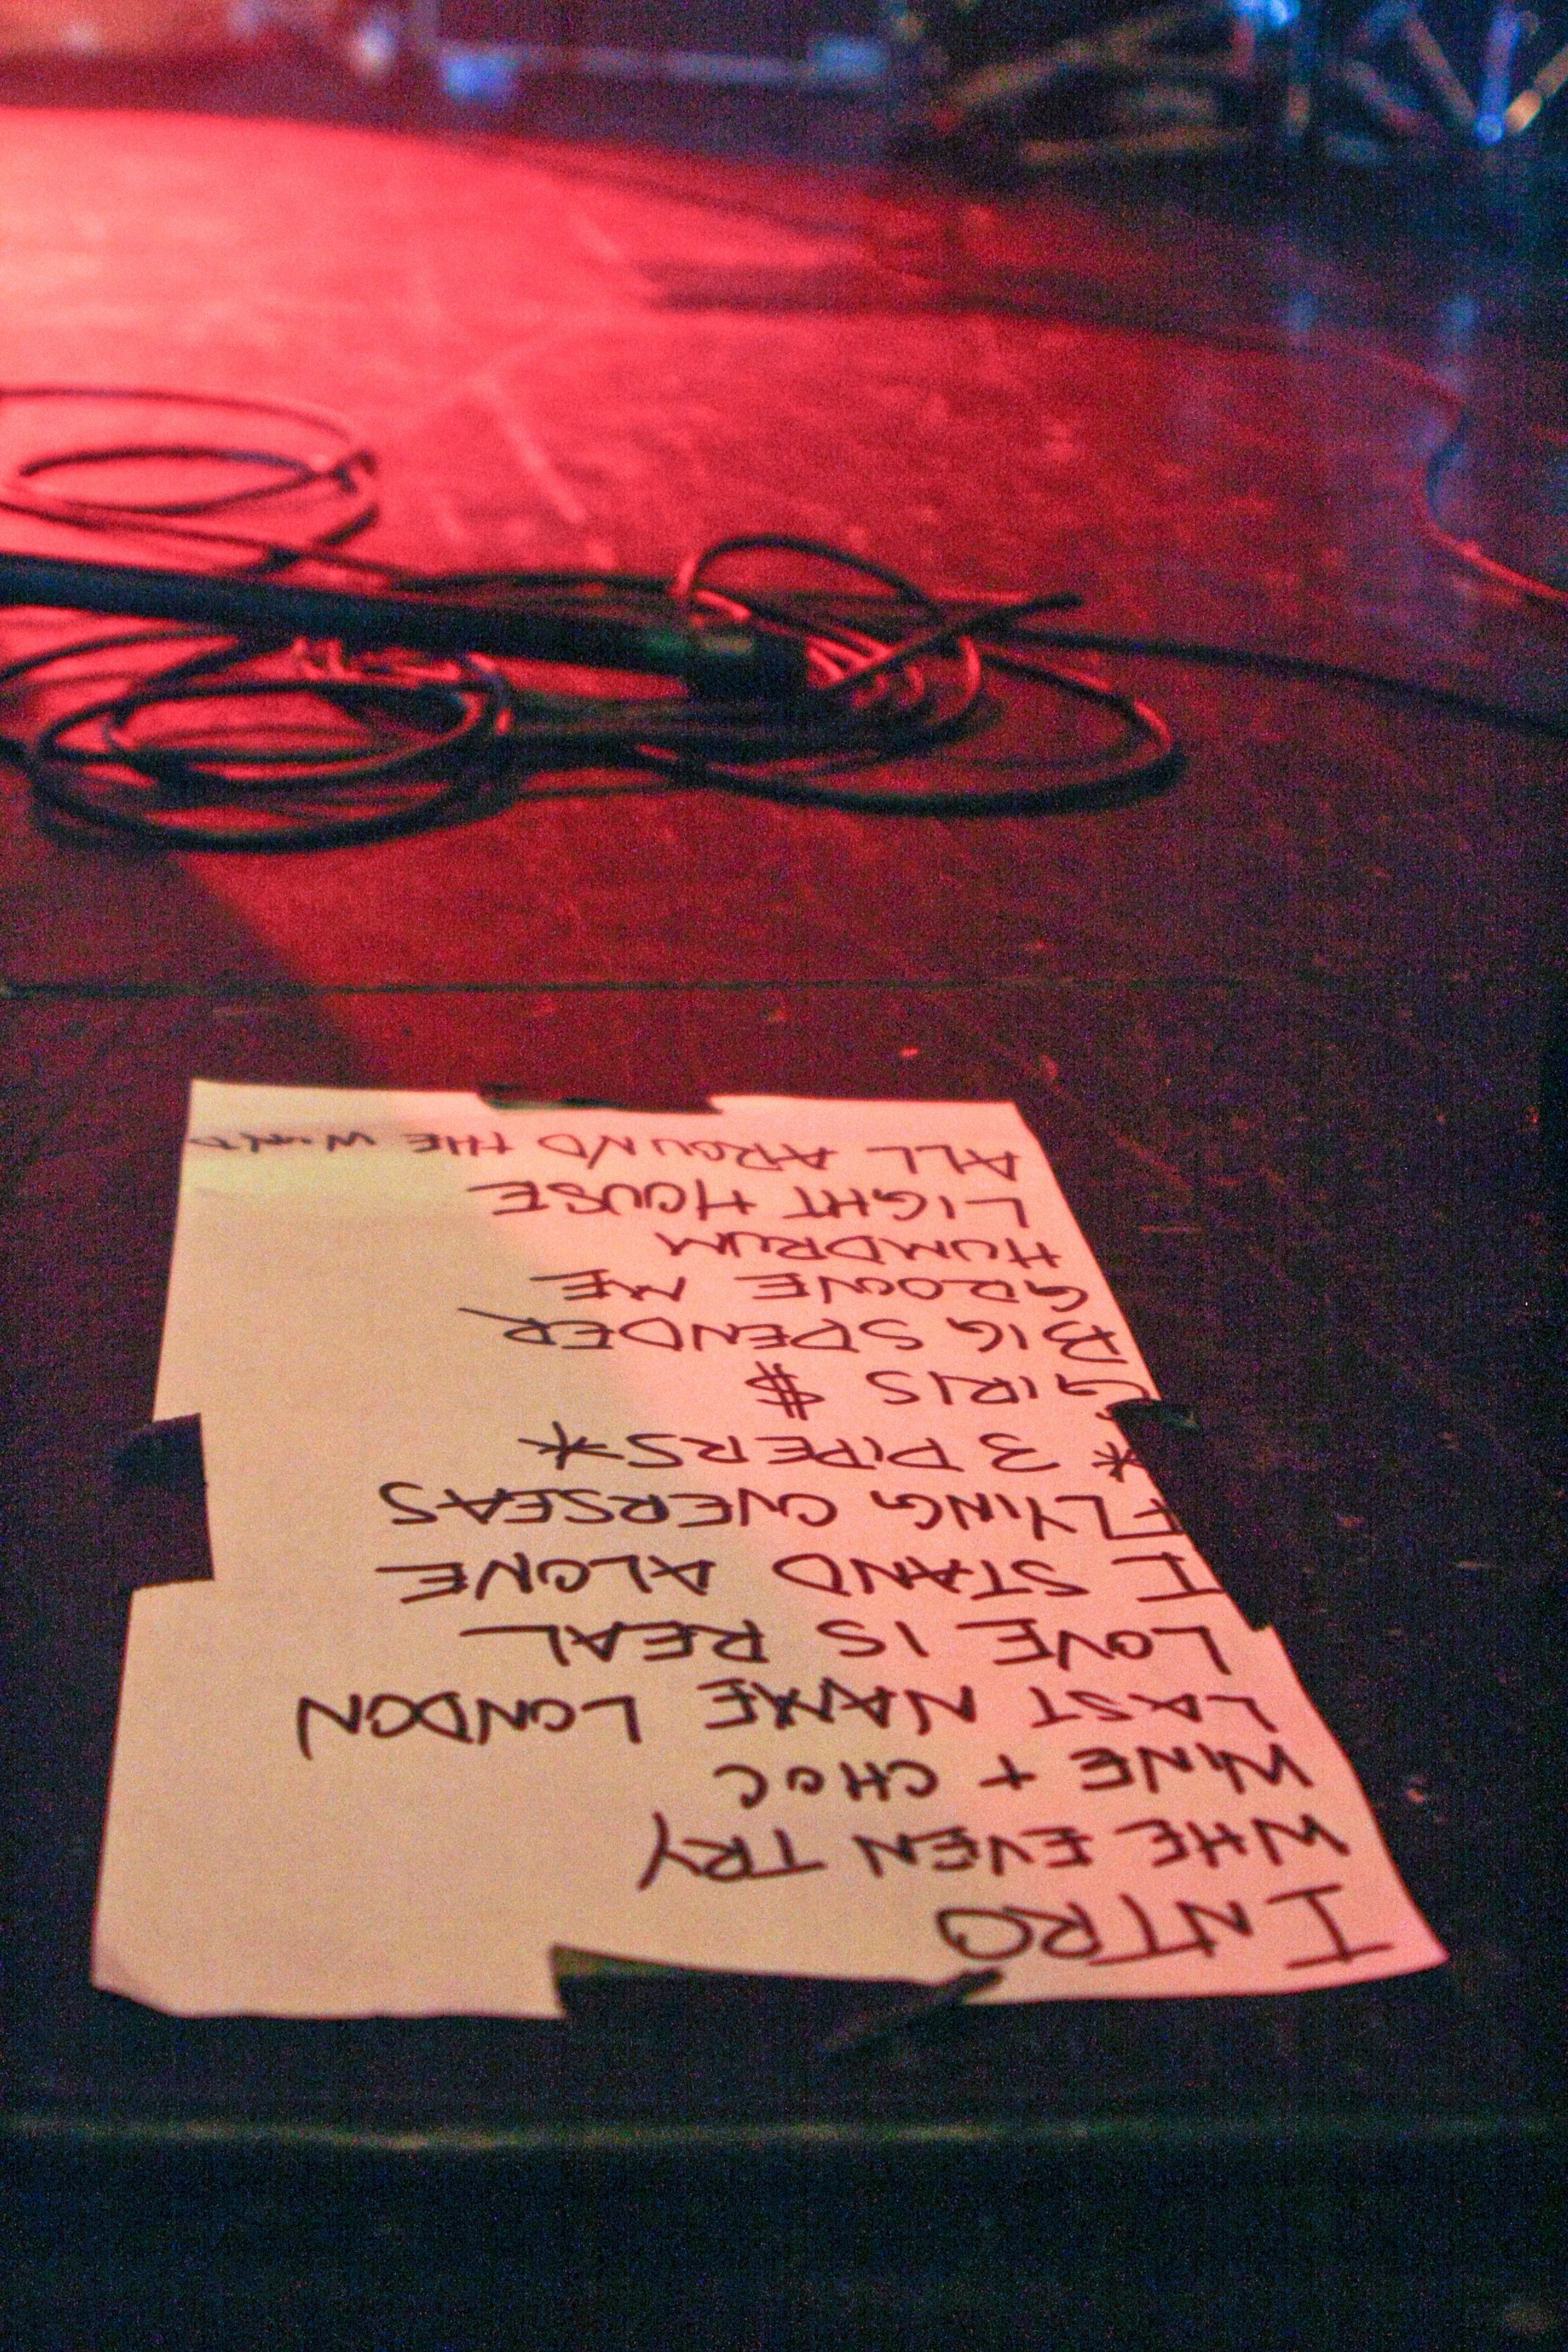 INTRO
WHE EVEN TRY
WINE + CHOC
LAST NAME LONDON
LOVE IS REAL
I STAND ALONE
FLYING OVERSEAS
* 3 PIPERS *
GIRLS $
BIG SPENDER
GROOVE ME
HUMDRUM
LIGHT HOUSE
ALL AROUND THE WORLD